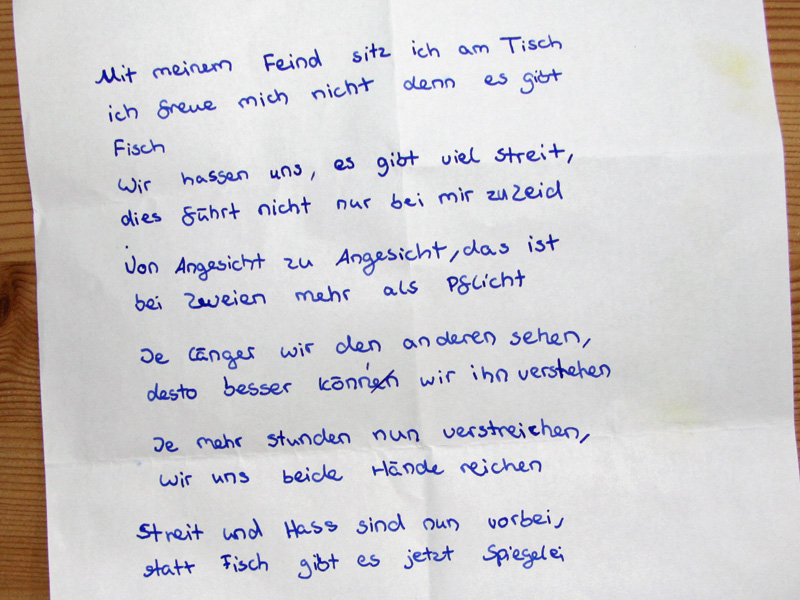 Mit meinem Feind sitz ich am Tisch
ich freue mich nicht denn es gibt
Fisch
Wir hassen uns, es gibt viel streit,
dies führt nicht nur bei mir zu Zeid
Von Angesicht zu Angesicht, das ist
bei Zweien mehr als Pflicht
Je länger wir den anderen sehen,
desto besser können wir ihn verstehen
Je mehr stunden nun verstreichen,
wir uns beide Hände reichen
Streit und Hass sind nun vorbei,
statt Fisch gibt es jetzt Spiegelei